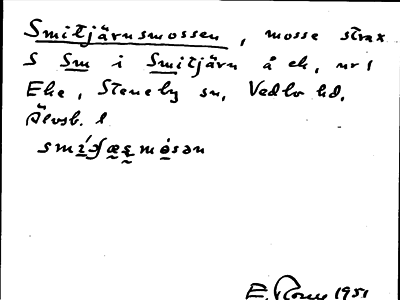 Smitjärnsmossen, mosse strax
S Sm i Smitjärn å ek, nr 1
Eke, Steneby sn, Vedbo hd,
Älvsb. l
E. 1951